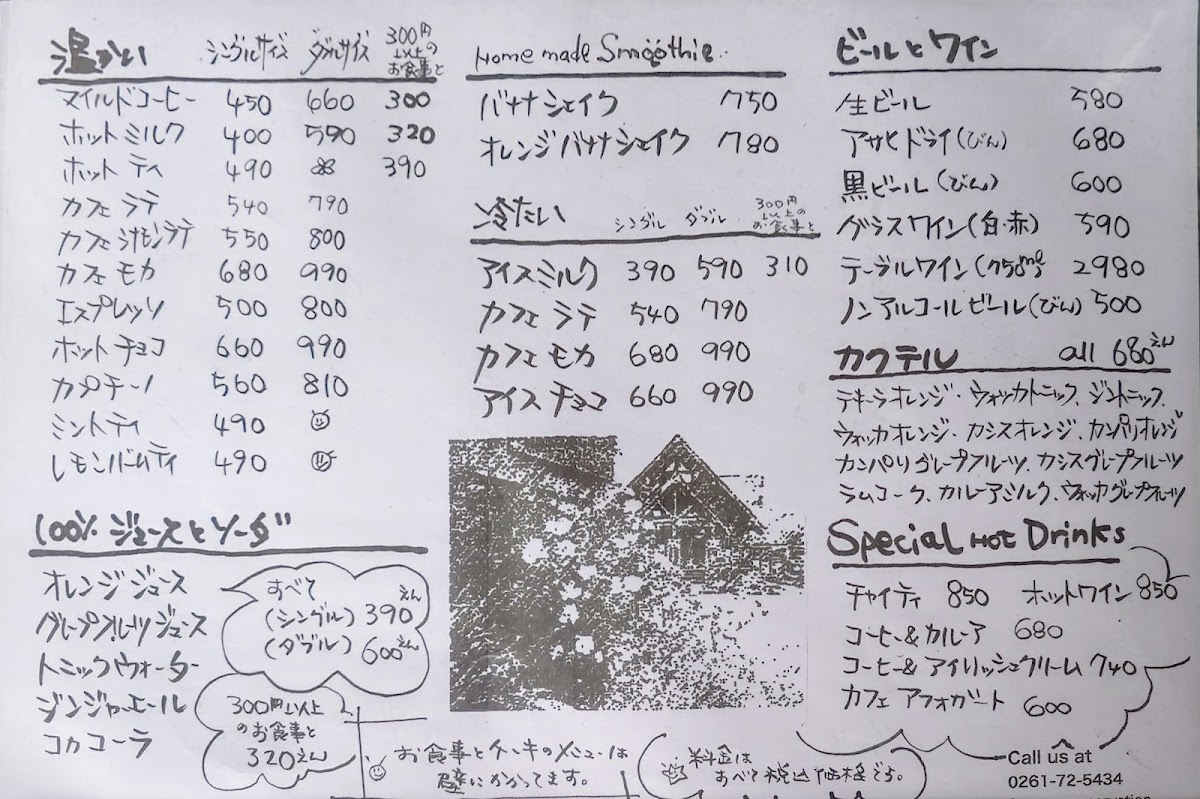 温かい シングルサイズ ダブルサイズ 300円以上のお食事と
マイルドコーヒー 450 660 300
ホットミルク 400 590 320
ホット ティ 490 390
カフェ ラテ 540 790
カフェ シナモンラテ 550 800
カフェ モカ 680 990
エスプレッソ 500 800
ホット チョコ 660 990
カプチーノ 560 810
ミントティ 490
レモンバームティ 490
100% ジュースとソーダ
オレンジジュース
グレープフルーツジュース
トニックウォーター
ジンジャーエール
コカコーラ
すべて
(シングル) 390えん
(ダブル) 600えん
300円以上
のお食事と
320えん
Home made Smoothie.
バナナシェイク 750
オレンジバナナシェイク 780
冷たい シングル ダブル 300円以上のお食事と
アイスミルク 390 590 310
カフェ ラテ 540 790
カフェ モカ 680 990
アイス チョコ 660 990
お食事とケーキのメニューは
壁にかかってます。
料金は
すべて税込価格です。
ビールとワイン
生ビール 580
アサヒドライ(びん) 680
黒ビール(びん) 600
グラスワイン(白・赤) 590
テーブルワイン(750ml) 2980
ノンアルコールビール(びん) 500
カクテル all 680えん
テキーラオレンジ・ウォッカトニック、ジントニック、
ウォッカオレンジ、カシスオレンジ、カンパリオレンジ
カンパリグレープフルーツ、カシスグレープフルーツ
ラムコーク、カルーアミルク、ウォッカグレープフルーツ
Special Hot Drinks
チャイティ 850 ホットワイン 850
コーヒー&カルーア 680
コーヒー&アイリッシュクリーム 740
カフェ アフォガート 600
Call us at
0261-72-5434